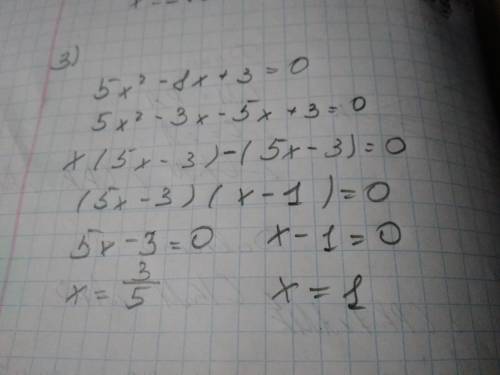 3)
5x² - 8x + 3 = 0
5x² - 3x - 5x + 3 = 0
x(5x - 3) - (5x - 3) = 0
(5x - 3)(x - 1) = 0
5x - 3 = 0 x - 1 = 0
x = 3/5 x = 1